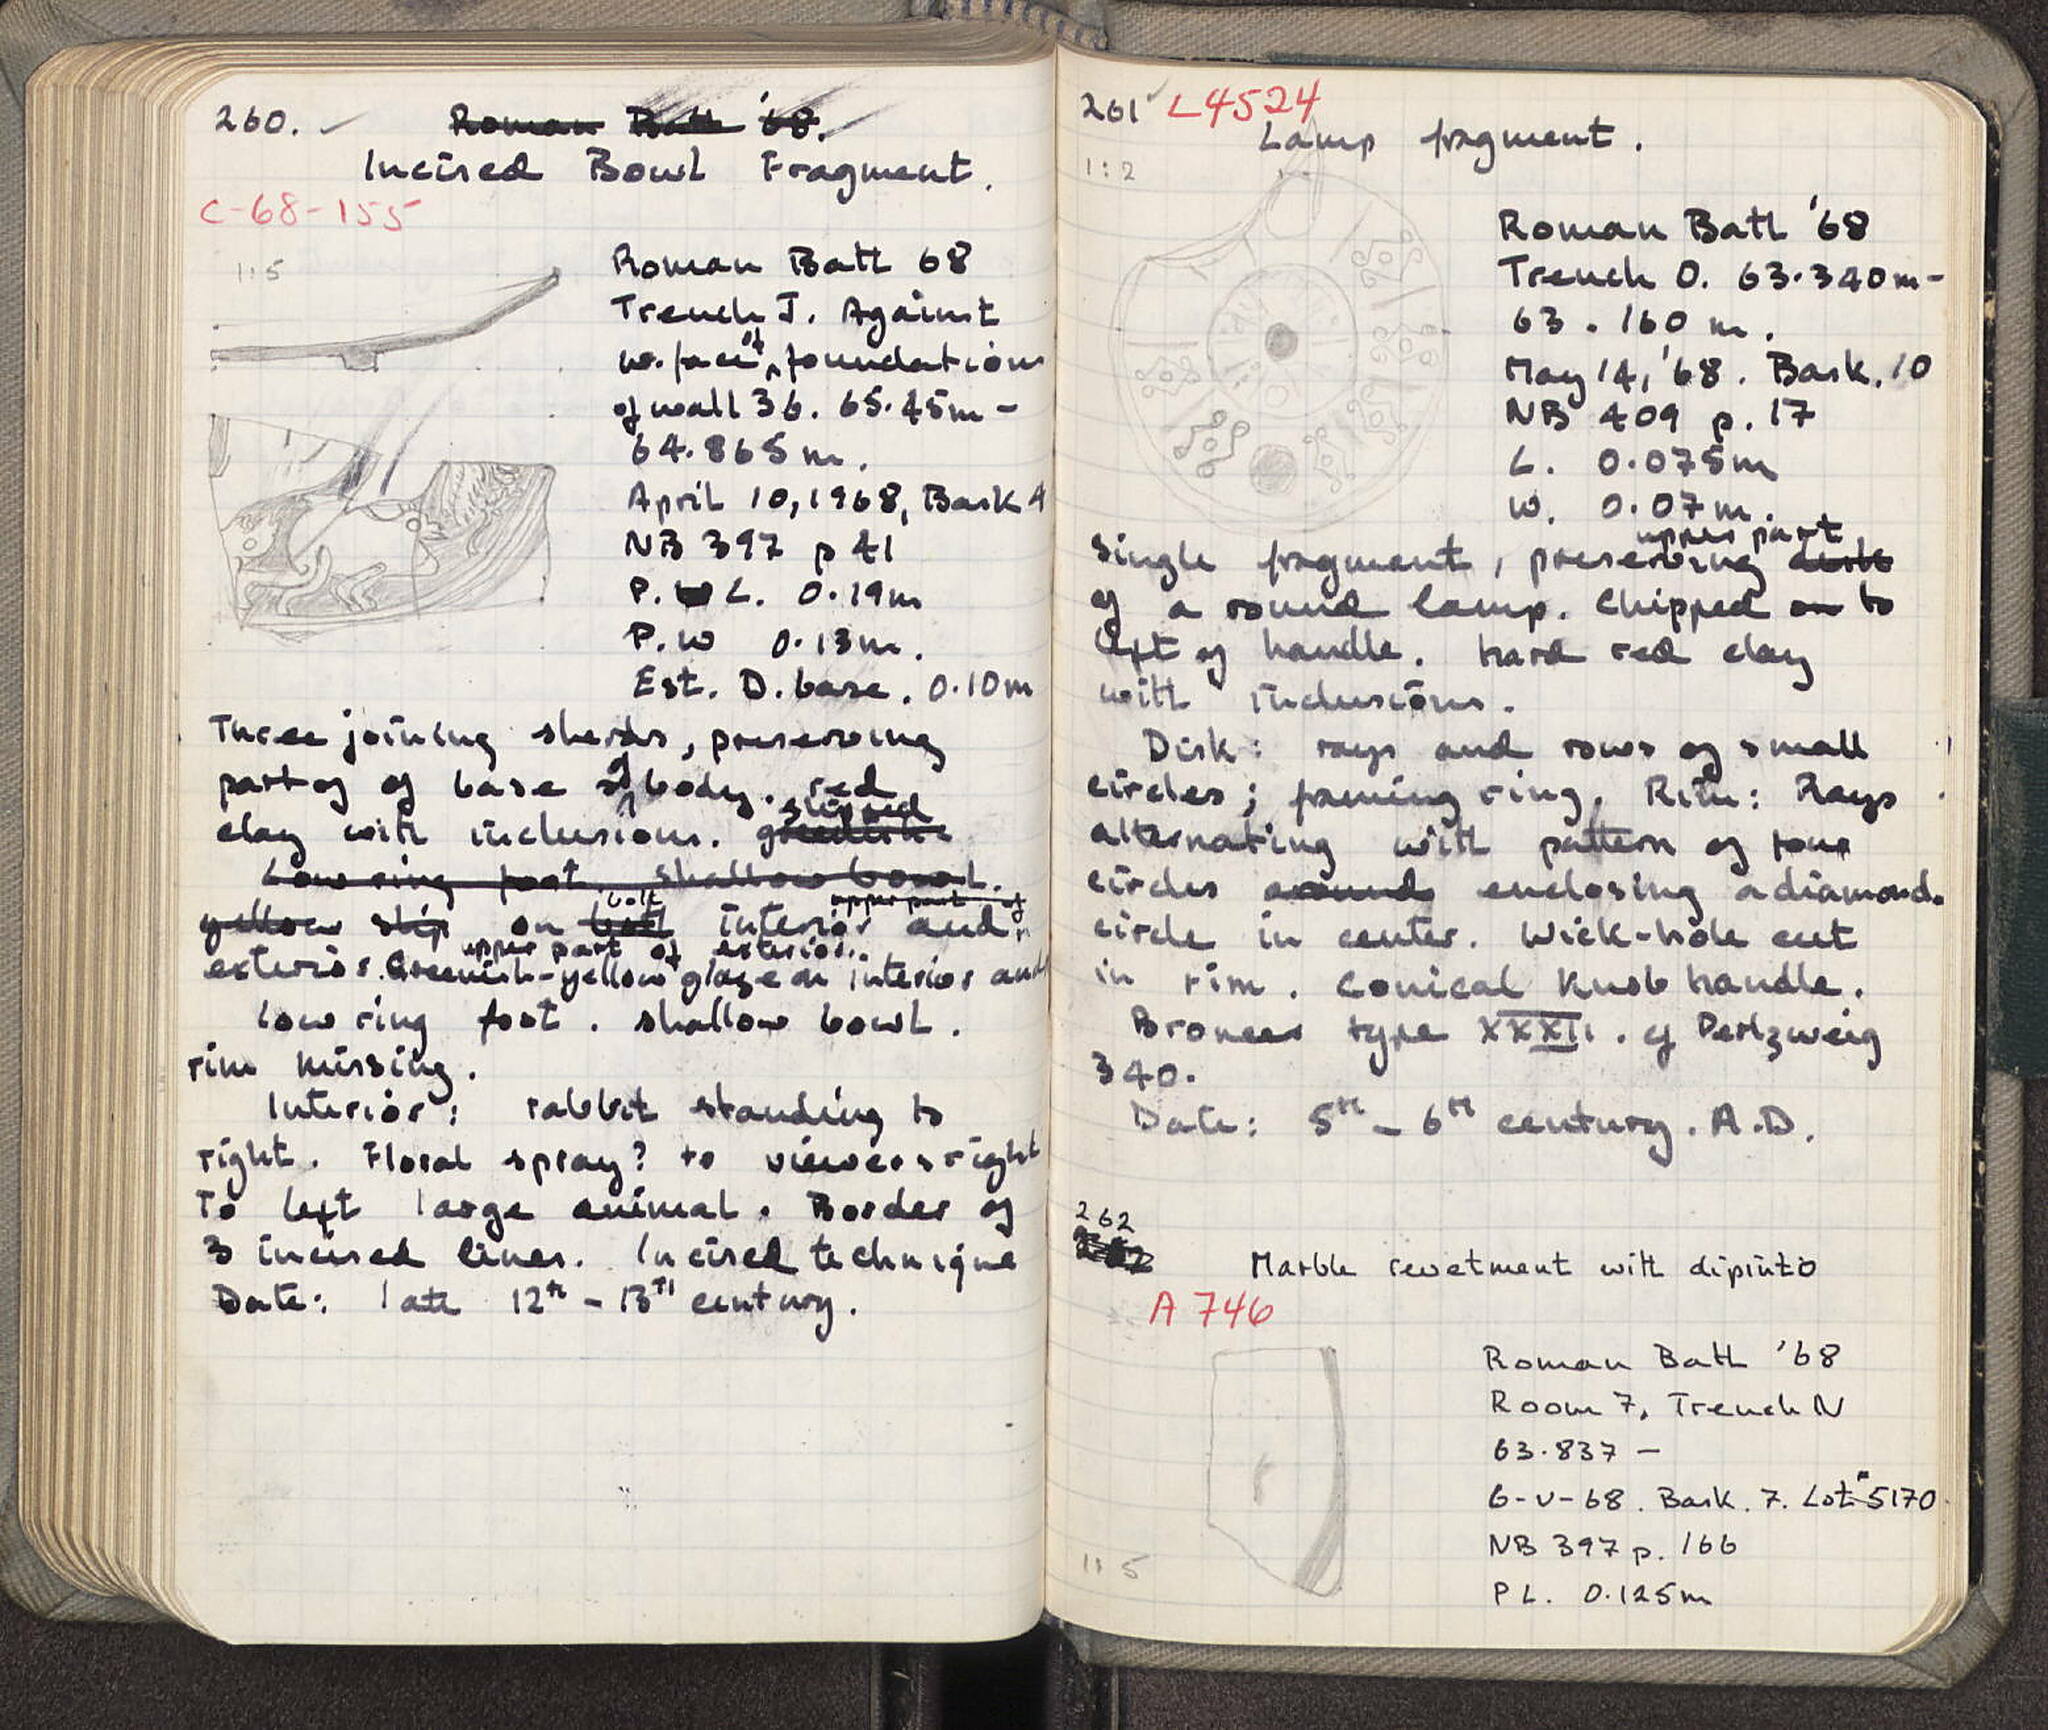 260.
Roman Bath '68.
Incised Bowl Fragment.
C-68-155
1:5
Roman Bath 68
Trench J. Against
w. face of foundations
of wall 36. 65.45m -
64.865m.
April 10, 1968, Bask 4
NB 397 p 41
P. L. 0.19m
P.W 0.13m.
Est. D. base. 0.10m
Three joining sherds, preserving
part of of base of body. red
clay with inclusions. slipped
Low ring foot. Shallow bowl.
yellow slip on both interior and
upper part of
upper part of exterior.
exterior. Greenish-yellow glaze on interior and
Low ring foot. Shallow bowl.
rim missing.
Interior: rabbit standing to
right. Floral spray? to viewers right
To left large animal. Border of
3 incised lines. Incised technique
Date: late 12th - 13th century.
261 L4524
Lamp fragment.
1:2
Roman Bath '68
Trench O. 63.340m -
63.160 m.
May 14, '68. Bask. 10
NB 409 p. 17
L. 0.075m
W. 0.07m.
upper part
Single fragment, preserving
of a round lamp. Chipped on to
left of handle. Hard red clay
with inclusions.
Disk: rays and rows of small
circles; framing ring. Rim: Rays
alternating with pattern of four
circles around enclosing a diamond.
circle in center. Wick-hole cut
in rim. Conical knob handle.
Broneer type XXXII. cf Perlzweig
340.
Date: 5th - 6th century. A.D.
262
Marble revetment with dipinto
A 746
Roman Bath '68
Room 7, Trench N
63.837 -
6-V-68. Bask. 7. Lot 5170
NB 397 p. 166
PL. 0.125m
1:5